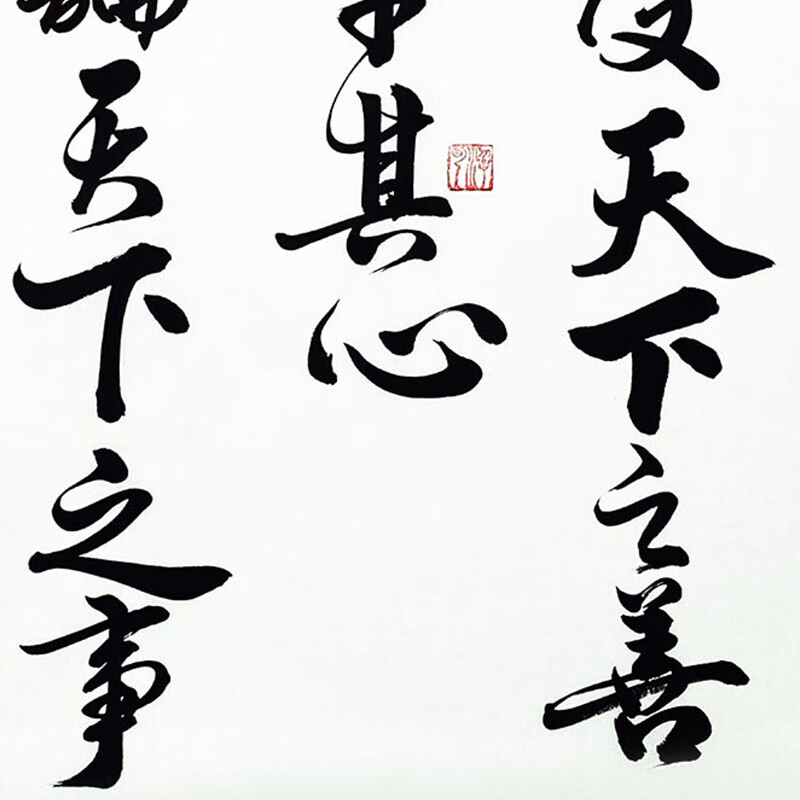 天下之善
其心
天下之事